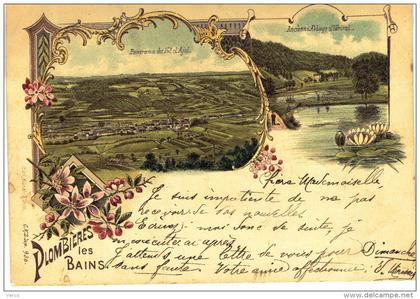 Panorama du Val d'Ajol.
Ancienne Abbaye d'Hérival.
PLOMBIÈRES
les
BAINS
Chère Mademoiselle
Je suis impatiente de ne pas
recevoir de vos nouvelles
Ecrivez moi donc de suite, je
J'attends une lettre de vous pour Dimanche
sans faute Votre amie affectionnée